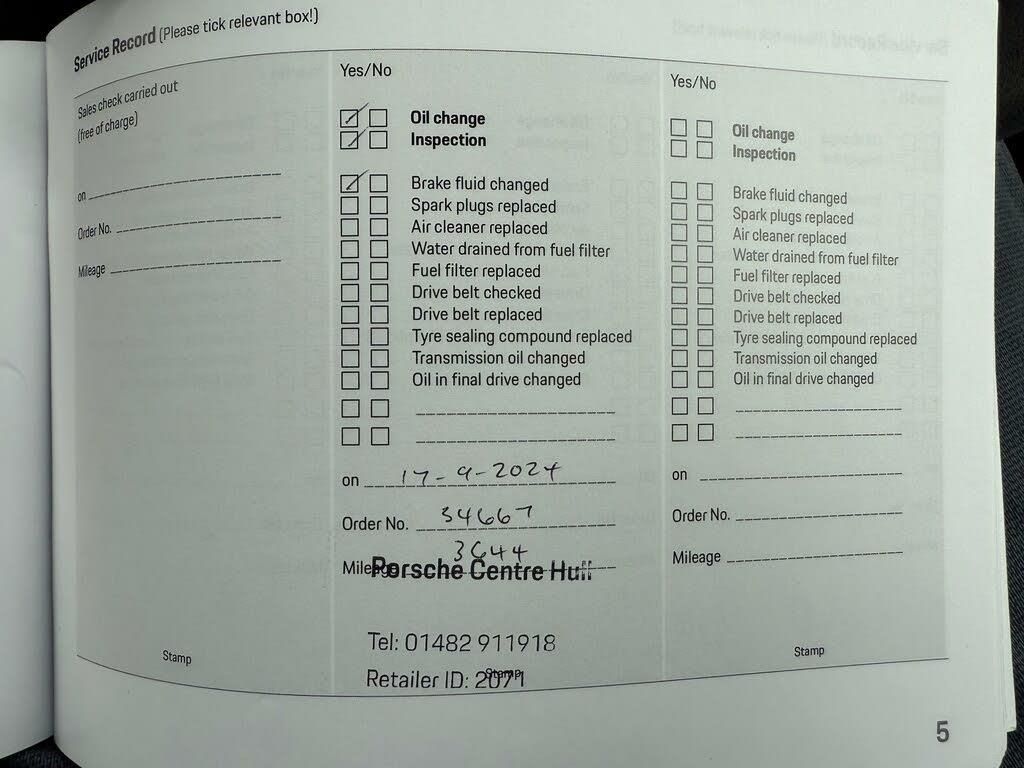 Service Record (Please tick relevant box!)
Sales check carried out
(free of charge)
on
Order No.
Mileage
Stamp
Yes/No
Oil change
Inspection
Brake fluid changed
Spark plugs replaced
Air cleaner replaced
Water drained from fuel filter
Fuel filter replaced
Drive belt checked
Drive belt replaced
Tyre sealing compound replaced
Transmission oil changed
Oil in final drive changed
on 17-9-2024
Order No. 34667
Mileage 3644
Porsche Centre Hull
Tel: 01482 911918
Retailer ID: 2071
Stamp
Yes/No
Oil change
Inspection
Brake fluid changed
Spark plugs replaced
Air cleaner replaced
Water drained from fuel filter
Fuel filter replaced
Drive belt checked
Drive belt replaced
Tyre sealing compound replaced
Transmission oil changed
Oil in final drive changed
on
Order No.
Mileage
Stamp
5